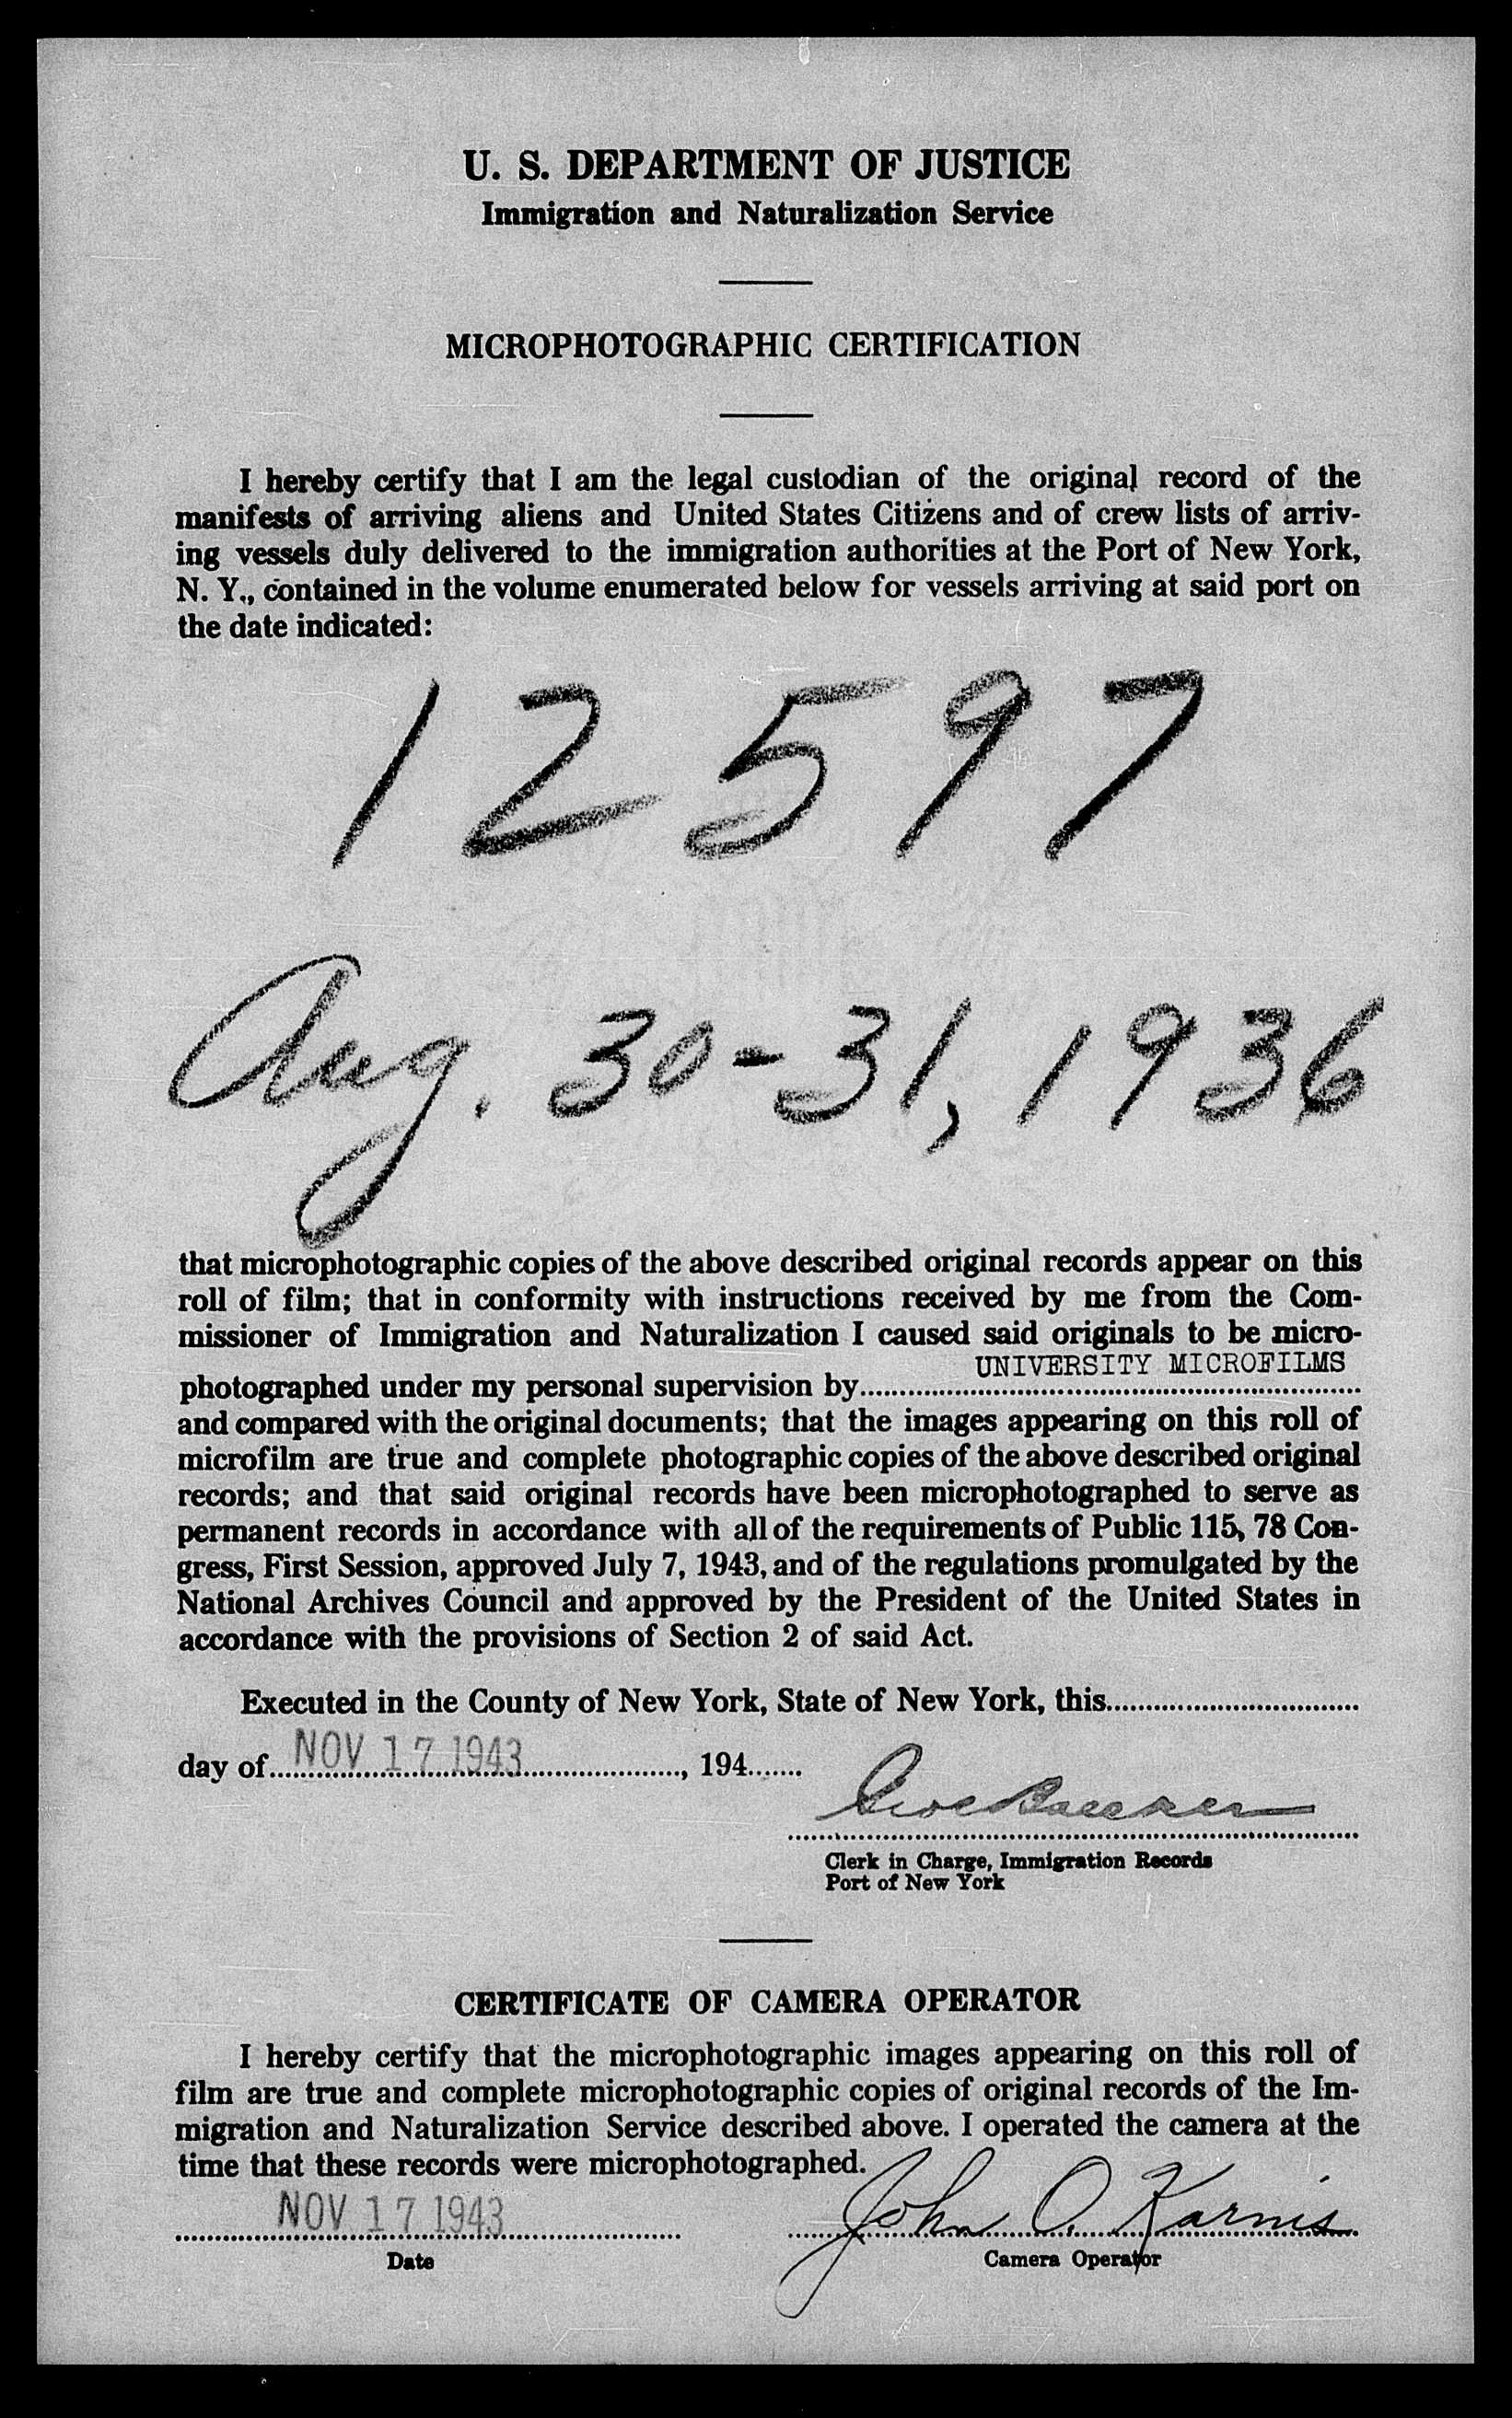 U. S. DEPARTMENT OF JUSTICE
Immigration and Naturalization Service
MICROPHOTOGRAPHIC CERTIFICATION
I hereby certify that I am the legal custodian of the original record of the
manifests of arriving aliens and United States Citizens and of crew lists of arriv-
ing vessels duly delivered to the immigration authorities at the Port of New York,
N. Y., contained in the volume enumerated below for vessels arriving at said port on
the date indicated:
12597
Aug. 30-31, 1936
that microphotographic copies of the above described original records appear on this
roll of film; that in conformity with instructions received by me from the Com-
missioner of Immigration and Naturalization I caused said originals to be micro-
photographed under my personal supervision by UNIVERSITY MICROFILMS
and compared with the original documents; that the images appearing on this roll of
microfilm are true and complete photographic copies of the above described original
records; and that said original records have been microphotographed to serve as
permanent records in accordance with all of the requirements of Public 115, 78 Con-
gress, First Session, approved July 7, 1943, and of the regulations promulgated by the
National Archives Council and approved by the President of the United States in
accordance with the provisions of Section 2 of said Act.
Executed in the County of New York, State of New York, this
day of NOV 17 1943, 194
Clerk in Charge, Immigration Records
Port of New York
CERTIFICATE OF CAMERA OPERATOR
I hereby certify that the microphotographic images appearing on this roll of
film are true and complete microphotographic copies of original records of the Im-
migration and Naturalization Service described above. I operated the camera at the
time that these records were microphotographed.
NOV 17 1943 John O. Karnis
Date Camera Operator